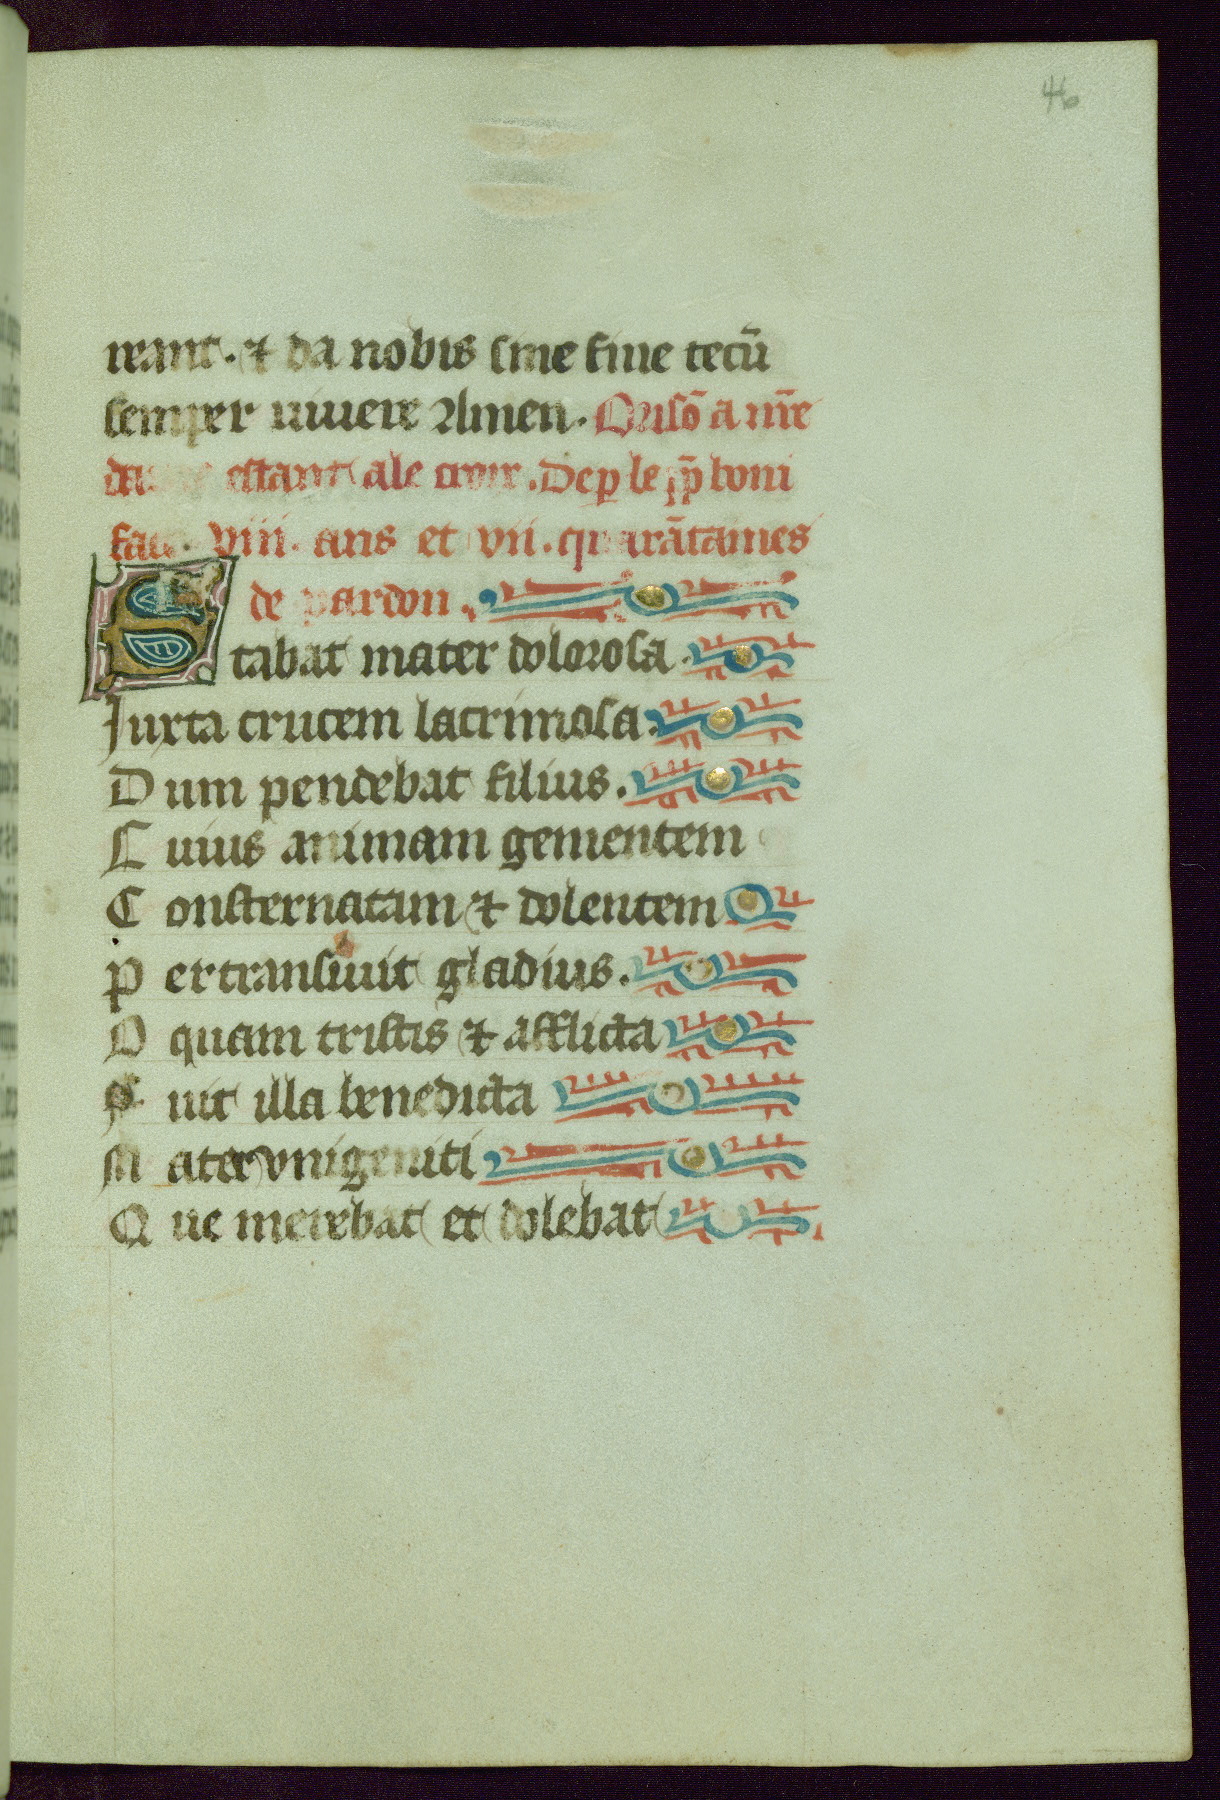 46
reant. ⁊ da nobis sine fine tecū
semper viuere Amen. Orisō a nr̄e
dame estant ale croix. De p le pp̄ boni
face. viii. ans et vii. quarātaines
de pardon.
Stabat mater dolorosa.
Iuxta crucem lacrimosa.
Dum pendebat filius.
Cuius animam gementem
Consternatam ⁊ dolentem
Pertransiuit gladius.
O quam tristis ⁊ afflicta
Fuit illa benedicta
Mater vnigeniti
Que merebat et dolebat